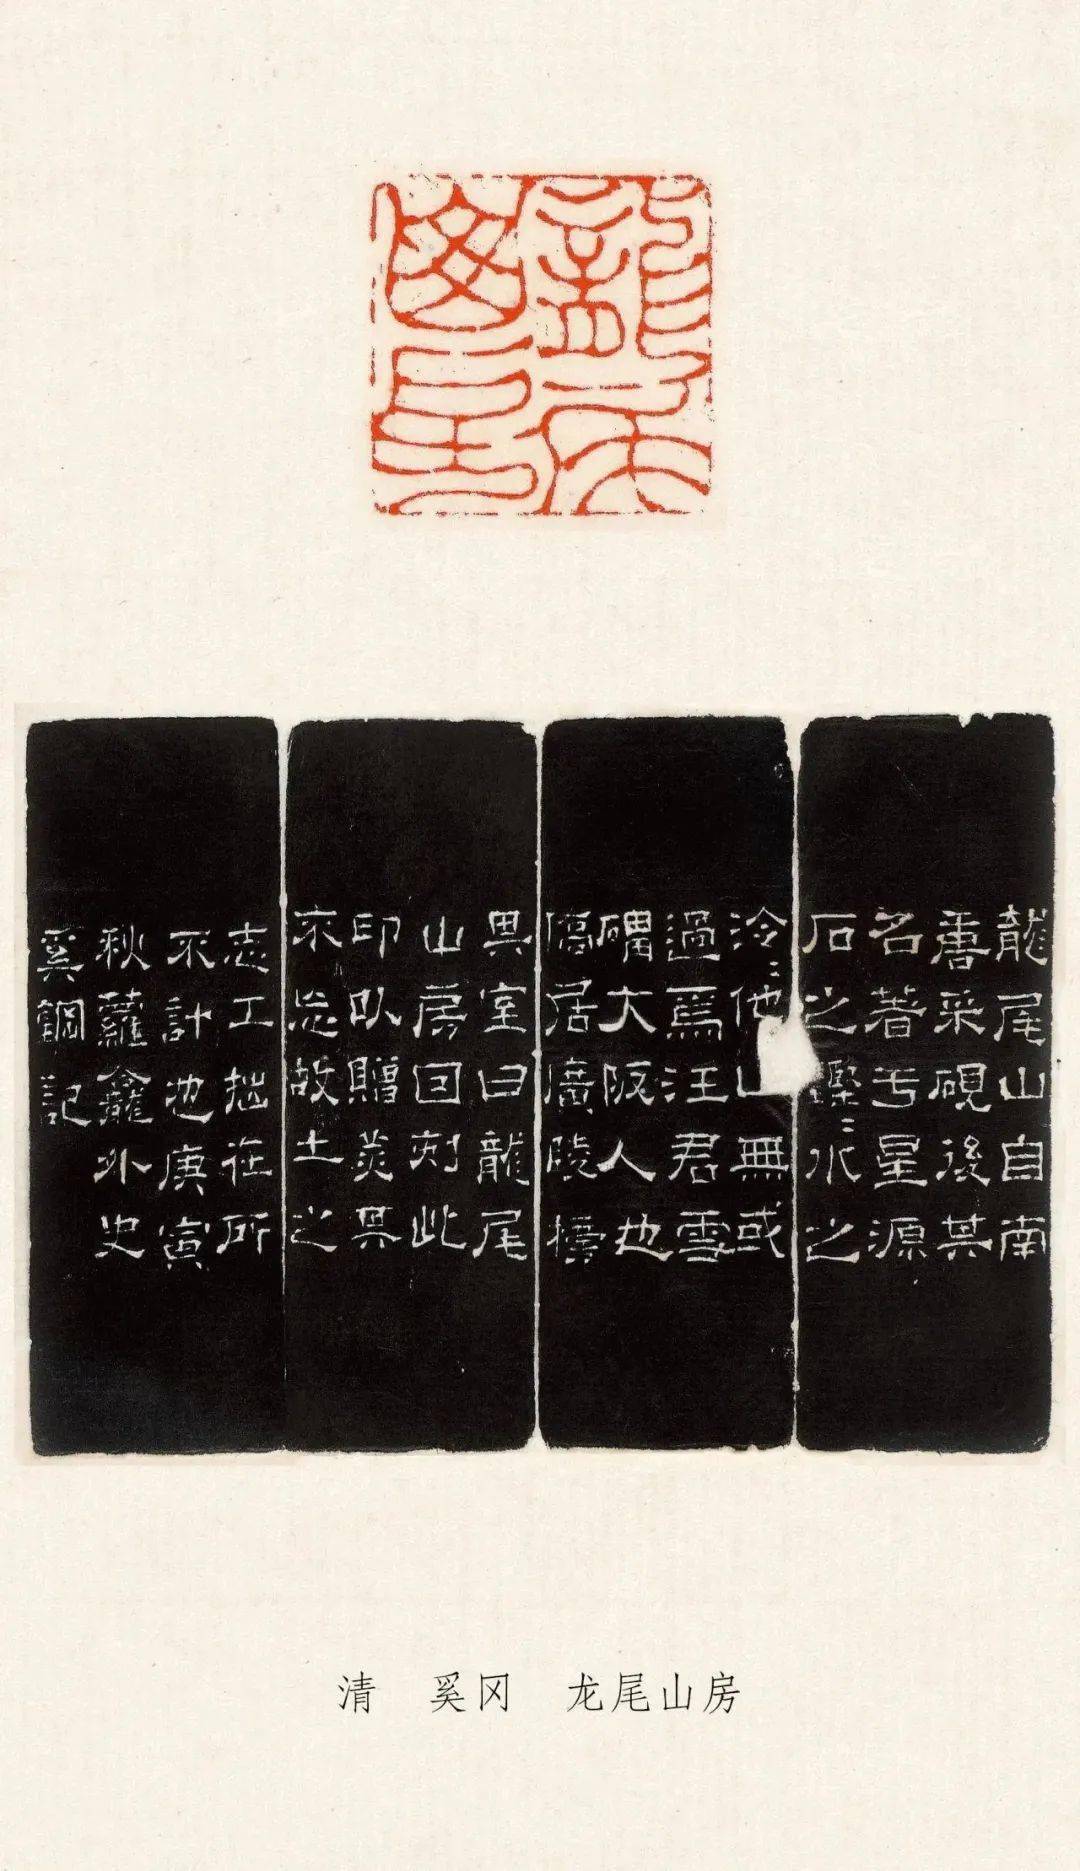 龍尾山自南
唐采硯後其
名著于星源
石之瑩=水之
泠=他山無或
過焉汪君雪
礀大阪人也
僑居廣陵榜
其室曰龍尾
山房因刻此
印以贈美其
不忘故土之
志工拙在所
不計也庚寅
秋蘿龕外史
奚鋼記
清 奚冈 龙尾山房